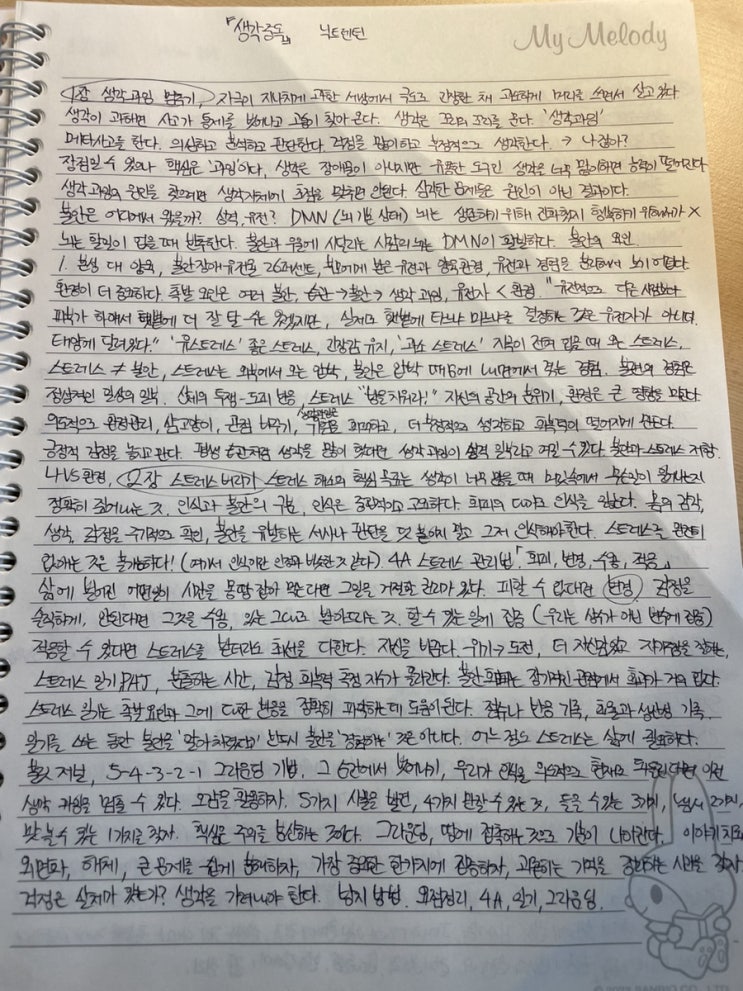 『생각중독』 닉트렌턴
My Melody
1장 생각과잉 멈추기, 자극이 지나치게 과한 세상에서 극도로 긴장한 채 과도하게 머리를 쓰면서 살고있다
생각이 과하면 사고가 통제를 벗어나고 고통이 찾아온다. 생각은 꼬리의 꼬리를 문다. '생각과잉'
메타사고를 한다. 의심하고 분석하고 판단한다. 걱정을 많이하고 부정적으로 생각한다. → 나잖아?
장점일 수 있으나 핵심은 '과잉'이다, 생각은 장애물이 아니지만 유용한 도구인 생각을 너무 많이하면 능력이 떨어진다
생각과잉의 원인을 찾으려면 생각자체에 초점을 맞추면 안된다. 심각한 문제들은 원인이 아닌 결과이다.
불안은 어디에서 왔을까? 성격, 유전? DMN (뇌 기본 상태) 뇌는 생존하기 위해 진화했지 행복하기 위해서가 X
뇌는 할일이 없을 때 분투한다. 불안과 우울에 시달리는 사람의 뇌는 DMN이 활발하다. 불안의 요인
1. 본성 대 양육, 불안장애유전율 26퍼센트, 유전과 양육환경, 유전과 경험을 분리해서 보기 어렵다
환경이 더 중요하다. 촉발 요인은 여러 불안, 습관 → 불안 → 생각 과잉, 유전자 < 환경. "유전적으로 다른 사람보다
피부가 하얘서 햇볕에 더 잘 탈 수는 있겠지만, 실제로 햇볕에 타느냐 마느냐를 결정하는 것은 유전자가 아니다.
태양에 달려있다." '유스트레스' 좋은 스트레스, 긴장감 유지, '과소 스트레스' 자극이 전혀 없을 때 오는 스트레스.
스트레스 ≠ 불안, 스트레스는 외부에서 오는 압박, 불안은 압박 때문에 내면에서 겪는 경험. 불편의 경험은
정상적인 일상의 일부. 신체의 투쟁-도피 반응, 스트레스 "방을치워라!" 자신의 공간의 분위기, 환경은 큰 영향을 미친다
의도적으로 환경관리, 관점 바꾸기, 생각과잉은 위험을 회피하고, 더 부정적으로 생각하고 회복력이 떨어지게 만든다.
긍정적 감정을 놓고 판다. 평생 습관처럼 생각을 많이 했다면 생각과잉이 성격 일부라고 여길 수 있다. 불안과 스트레스 저항.
나 VS 환경, 2장 스트레스 버리기 스트레스 해소의 핵심 목표는 생각이 너무 많을 때 머릿속에서 무슨일이 일어나는지
정확히 집어내는 것, 인식과 불안의 구분, 인식은 중립적이고 고요하다. 회피의 대가로 인식을 잃는다. 몸의 감각,
생각, 감정을 주기적으로 확인, 불안을 유발하는 서사나 판단을 덧 붙이지 말고 그저 인식해야한다. 스트레스를 완전히
없애는 것은 불가능하다! (여기서 인식이란 인정과 비슷한 것 같다) 4A 스트레스 관리법 「회피, 변경, 수용, 적응」
삶에 벌어진 어떤일이 시간을 몽땅 잡아 먹는다면 그일을 거절할 권리가 있다. 피할 수 없다면 변경, 걱정을
솔직하게, 안된다면 그것을 수용, 있는 그대로 받아드리는 것. 할 수 있는 일에 집중 (우리는 상수가 아닌 변수에 집중)
적응할 수 있다면 스트레스를 받더라도 최선을 다한다. 자신을 바꾼다. 위기 → 도전, 더 자신있고 자기감정을 잘하는,
스트레스 일기 PAJ, 분출하는 시간, 감정 회복력 측정 지수가 올라간다. 불안 회피는 장기적인 관점에서 효과가 거의 없다.
스트레스 일기는 촉발 요인과 그에 대한 반응을 정확히 파악하는데 도움이 된다. 점수나 반응 기록, 효율과 생산성 기록.
일기를 쓰는 동안 불안을 '알아차렸다'고 반드시 불안을 '경험하는' 것은 아니다. 어느 정도 스트레스는 삶에 필요하다.
불릿 저널, 5-4-3-2-1 그라운딩 기법. 그 순간에서 벗어나기, 우리가 인식을 의식적으로 현재로 되돌린다면 이런
생각 과잉을 멈출 수 있다. 오감을 활용하자. 5가지 사물을 발견, 4가지 만질 수 있는 것, 들을 수 있는 3가지, 냄새 2가지,
맛볼 수 있는 1가지를 찾자. 핵심은 주의를 분산하는 것이다. 그라운딩, 땅에 접촉하는 것으로 기분이 나아진다. 이야기 치료,
외면화, 해체, 큰 문제를 쉽게 분해하자, 가장 중요한 한가지에 집중하자, 괴롭히는 기억을 정리하는 시간을 갖자.
걱정은 실재가 있는가? 생각을 가려내야 한다. 낭지 방법. 요점정리, 4A, 일기, 그라운딩.